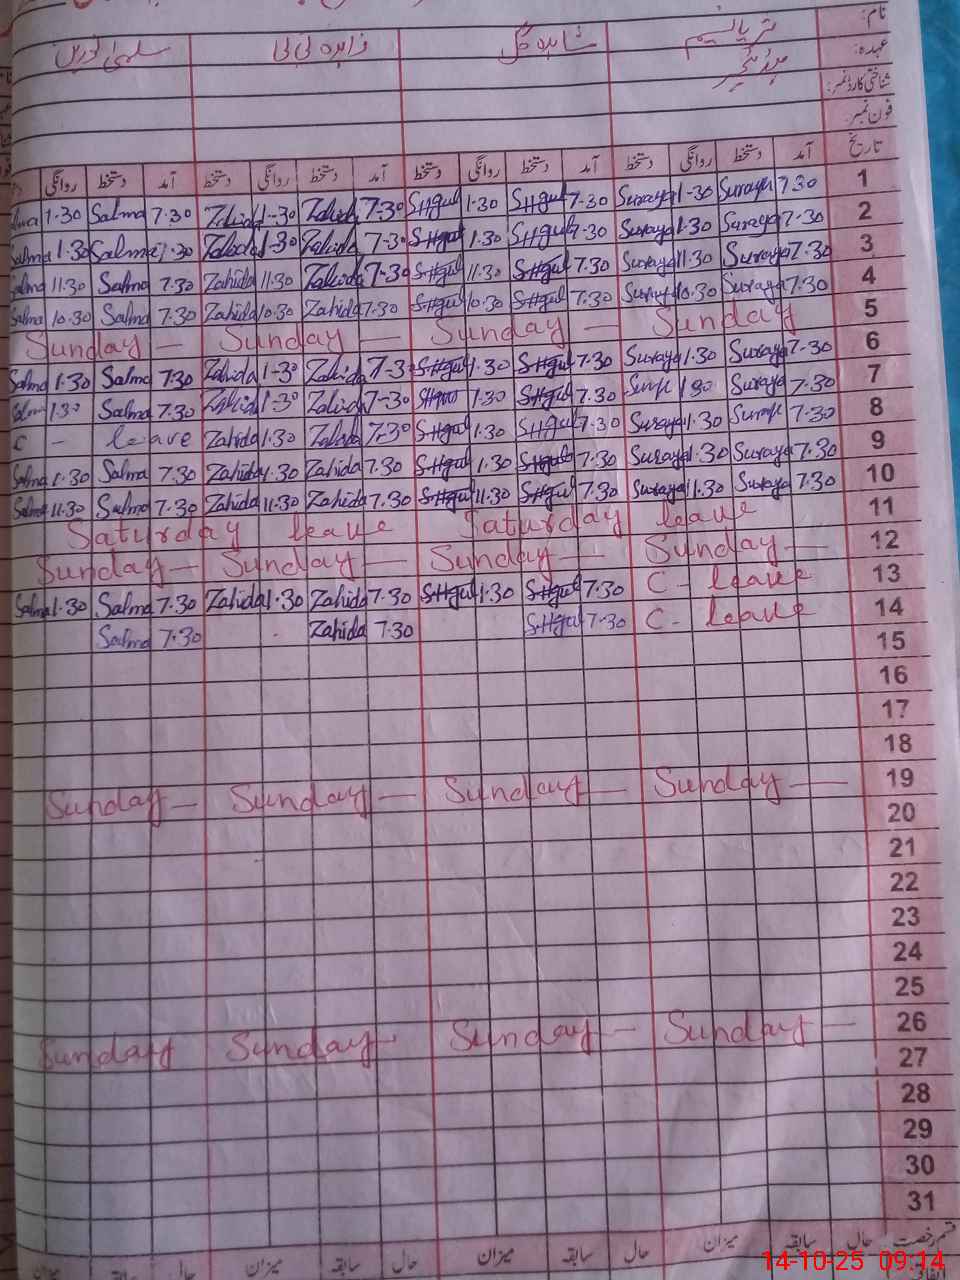 نام:
ثریا نسیم شاہدہ گل زاہدہ بی بی سلمیٰ نورین
عہدہ: ہیڈ ٹیچر
شناختی کارڈ نمبر:
فون نمبر:
تاریخ آمد دستخط روانگی دستخط آمد دستخط روانگی دستخط آمد دستخط روانگی دستخط آمد دستخط روانگی
1.30 Salma 7.30 Zahida 1-30 Zahida 7-30 SHgul 1.30 SHgul 7-30 Suraya 1-30 Suraya 7.30 1
Salma 1.30 Salma 7.30 Zahida 1-30 Zahida 7-30 SHgul 1.30 SHgul 7-30 Suraya 1.30 Suraya 7.30 2
Salma 11.30 Salma 7.30 Zahida 11.30 Zahida 7-30 SHgul 11.30 SHgul 7.30 Suraya 11.30 Suraya 7.30 3
Salma 10.30 Salma 7.30 Zahida 10.30 Zahida 7.30 SHgul 10.30 SHgul 7.30 Suraya 10.30 Suraya 7.30 4
Sunday — Sunday — Sunday — Sunday 5
Salma 1.30 Salma 7.30 Zahida 1-30 Zahida 7-30 SHgul 1.30 SHgul 7.30 Suraya 1.30 Suraya 7-30 6
Salma 1.30 Salma 7.30 Zahida 1-30 Zahida 7-30 1.30 SHgul 7.30 1.30 Suraya 7.30 7
C - leave Zahida 1.30 Zahida 7-30 SHgul 1.30 SHgul 7.30 Suraya 1.30 7.30 8
Salma 1.30 Salma 7.30 Zahida 1.30 Zahida 7.30 SHgul 1.30 SHgul 7.30 Suraya 1.30 Suraya 7.30 9
Salma 11.30 Salma 7.30 Zahida 11.30 Zahida 7.30 SHgul 11.30 SHgul 7.30 Suraya 11.30 Suraya 7.30 10
Saturday leave Saturday leave 11
Sunday — Sunday — Sunday — Sunday — 12
Salma 1.30 Salma 7.30 Zahida 1.30 Zahida 7.30 SHgul 1.30 SHgul 7.30 C - leave 13
Salma 7.30 Zahida 7.30 SHgul 7.30 C - leave 14
15
16
17
18
Sunday — Sunday — Sunday — Sunday — 19
20
21
22
23
24
25
Sunday Sunday - Sunday - Sunday — 26
27
28
29
30
31
قسم رخصت حال سابقہ میزان حال سابقہ میزان حال سابقہ میزان حال سابقہ
14-10-25 09:14